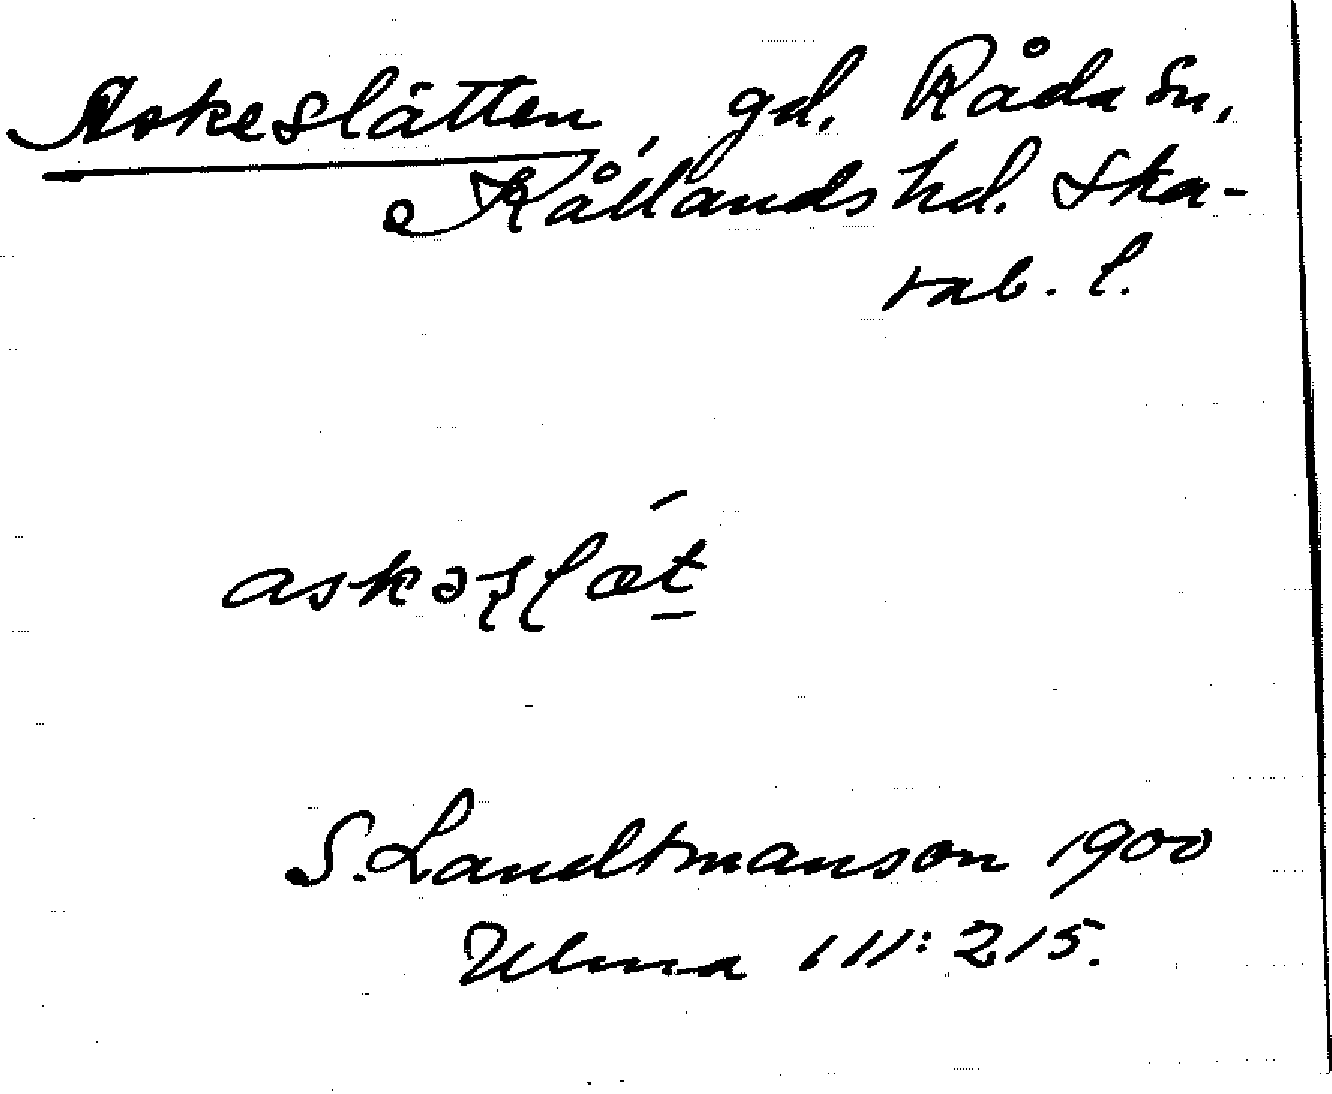 Askeslätten, gd. Råda sn,
Kållands hd. Ska-
rab. l.
askəslæt
S. Landtmanson 1900
Ulma 111:215.